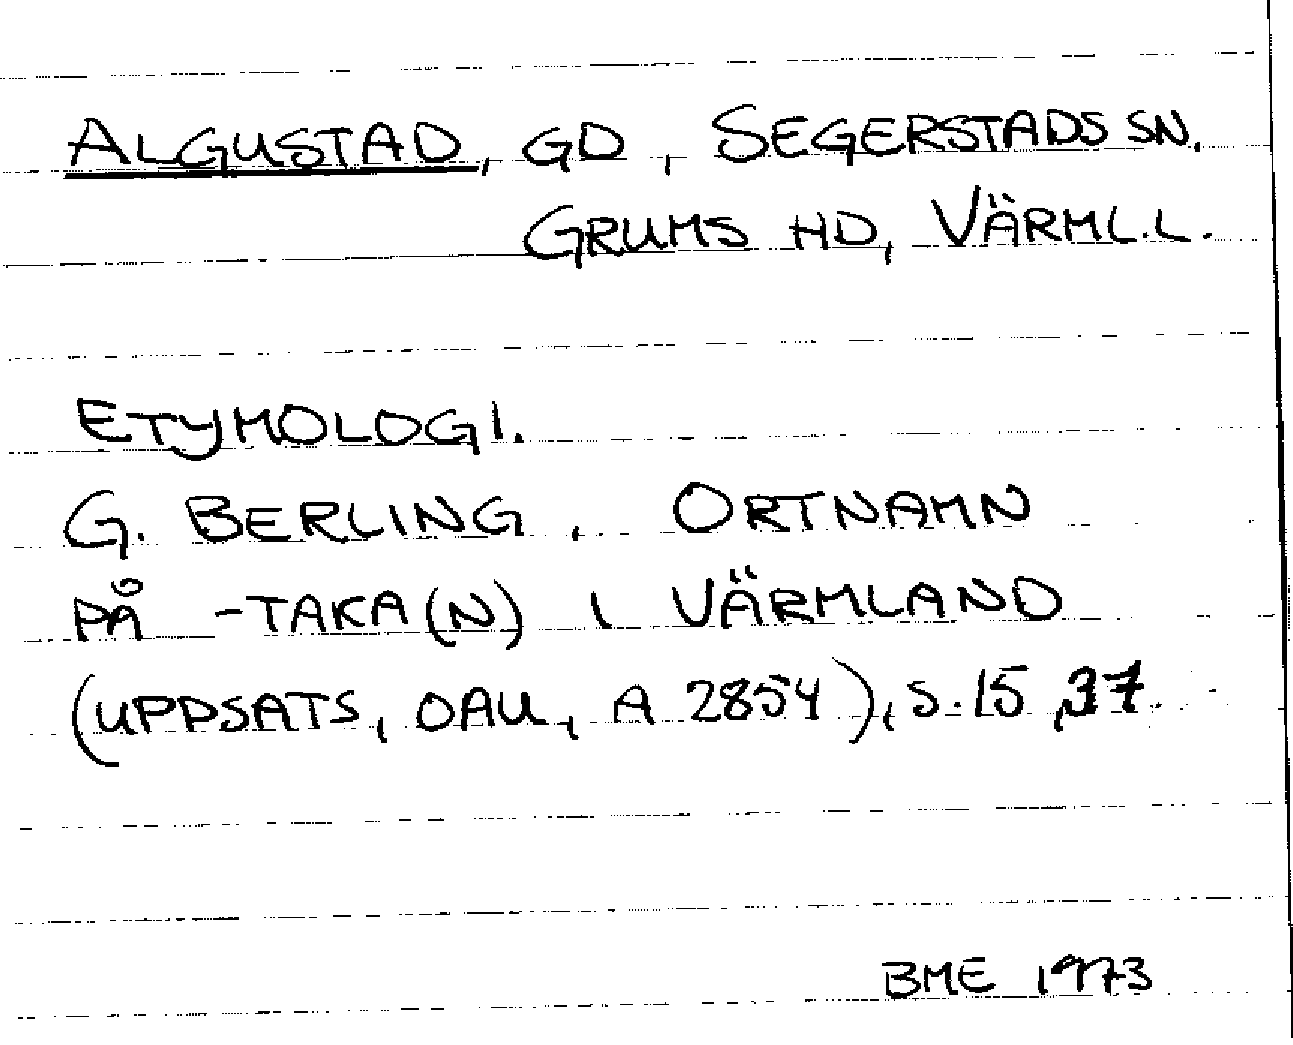 ALGUSTAD, GD, SEGERSTADS SN,
GRUMS HD, VÄRML.L.
ETYMOLOGI.
G. BERLING, ORTNAMN
PÅ -TAKA(N) I VÄRMLAND
(UPPSATS, OAU, A 2854), S. 15, 37.
BME 1973